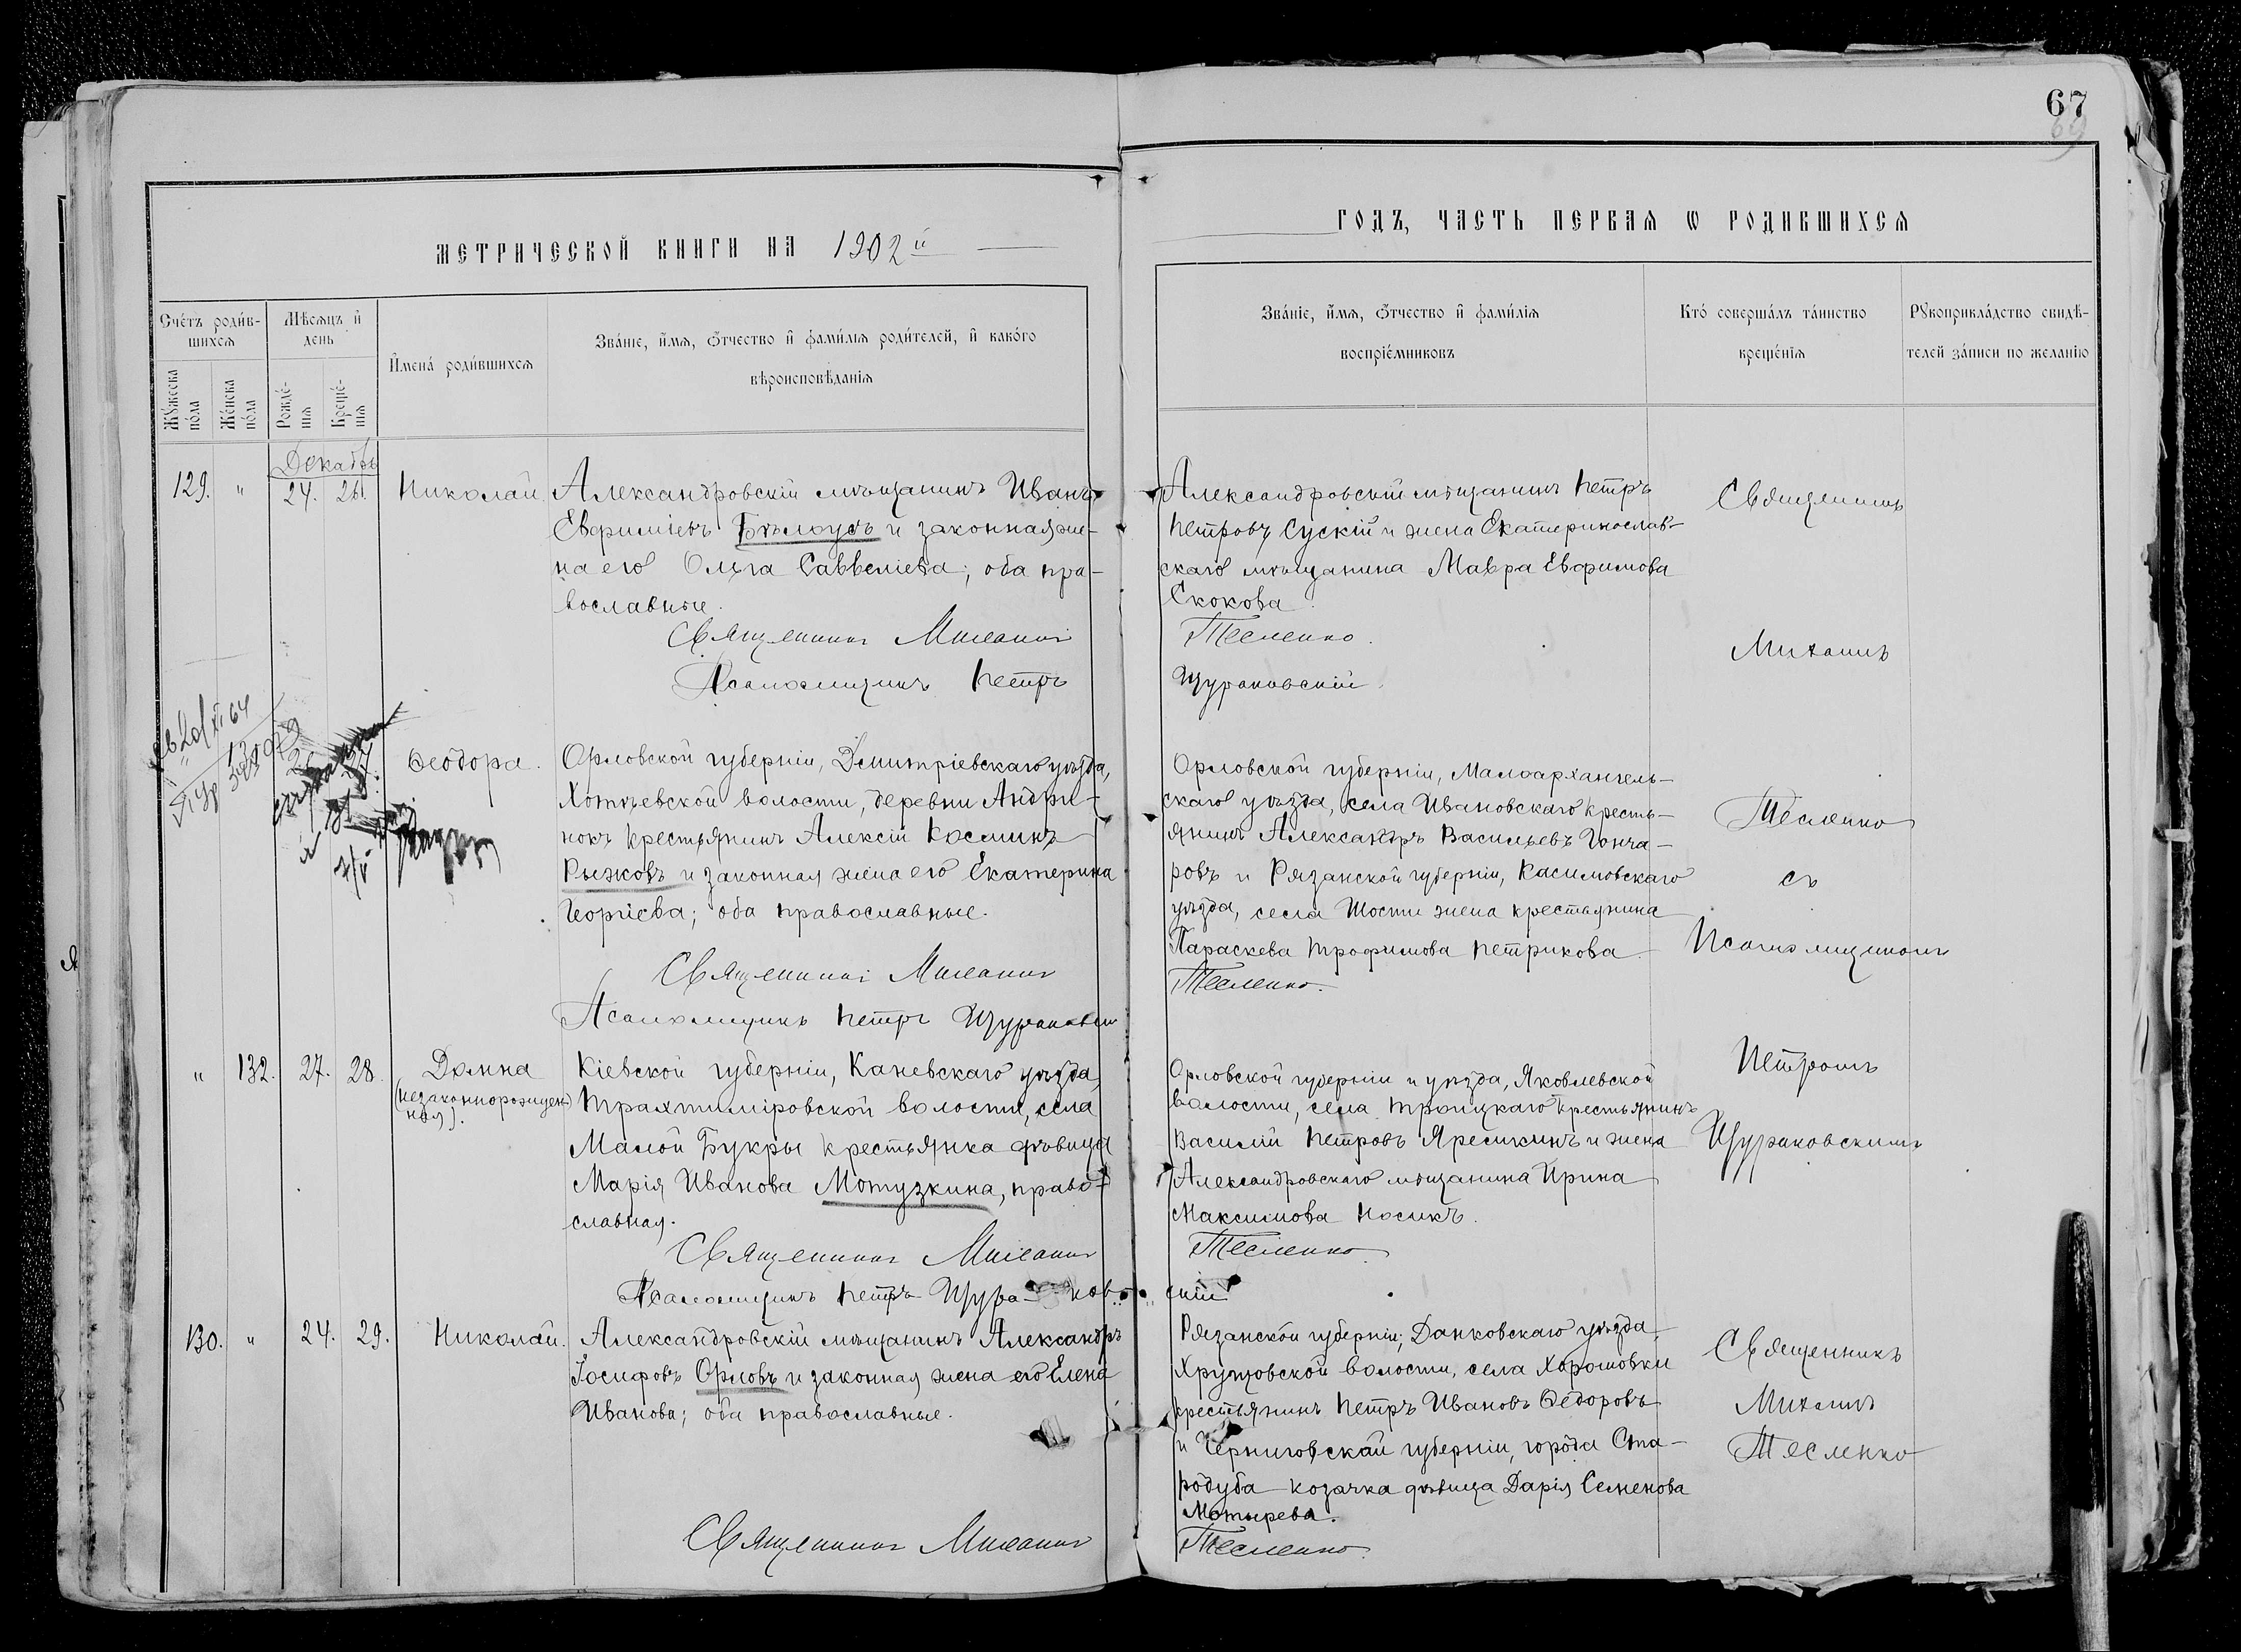 67
69
МЕТРИЧЕСКОЙ КНИГИ НА 1902й
ГОДЪ, ЧАСТЬ ПЕРВАЯ Ѡ РОДИВШИХСЯ
Сче́тъ роди́в-
шихся
Му́жеска
по́ла
Же́нска
по́ла
Мѣсяцъ и҆
день
Рожде́-
нія
Креще́-
нія
И҆мена́ роди́вшихся
Зва́ніе, и҆́мя, ѻ҆́тчество и҆ фами́лія роди́телей, и҆ како́го
вѣроисповѣ́данія
Зва́ніе, и҆́мя, ѻ҆́тчество и҆ фами́лія
воспріе́мниковъ
Кто̀ соверша́лъ та́инство
креще́нія
Рꙋкоприкла́дство свидѣ́-
телей за́писи по жела́нію
Декабрь
129. " 24. 26. Николай.
Александровскій мѣщанинъ Иванъ
Евфиміевъ Бѣлоусъ и законная же-
на его Ольга Савveліева; оба пра-
вославные.
Священникъ Михаилъ
Псаломщикъ Петръ
Александровскій мѣщанинъ Петръ
Петровъ Сускій и жена Екатеринослав-
скаго мѣщанина Мавра Евфимова
Скокова.
Тесленко.
Щураковскій.
Священникъ
Михаилъ
Тесленко
съ
Псаломщикомъ
Петромъ
Щураковскимъ
Ѳеодора.
Орловской губерніи, Дмитріевскаго уѣзда,
Хотѣевской волости, деревни Андри-
нокъ крестьянинъ Алексій Косминъ
Рыжовъ и законная жена его Екатерина
Георгіева; оба православные.
Священникъ Михаилъ
Псаломщикъ Петръ
Орловской губерніи, Малоархангель-
скаго уѣзда, села Ивановскаго кресть-
янинъ Александръ Васильевъ Гонча-
ровъ и Рязанской губерніи, Касимовскаго
уѣзда, села Шости жена крестьянина
Параскева Трофимова Петрикова.
Тесленко.
" 132. 27. 28. Домна
(незаконнорожден-
ная).
Кіевской губерніи, Каневскаго уѣзда,
Трахтиміровской волости, села
Малой Букры крестьянка дѣвица
Марія Иванова Мотузкина, право-
славная.
Священникъ Михаилъ
Псаломщикъ Петръ Щура-ков-
Орловской губерніи и уѣзда, Яковлевской
волости, села Троицкаго крестьянинъ
Василій Петровъ Яресикинъ и жена
Александровскаго мѣщанина Ирина
Максимова Носикъ.
Тесленко.
скій
130. " 24. 29. Николай.
Александровскій мѣщанинъ Александръ
Іосифовъ Орловъ и законная жена его Елена
Иванова; оба православные.
Священникъ Михаилъ
Рязанской губерніи, Данковскаго уѣзда,
Хрущовской волости, села Хорошовки
крестьянинъ Петръ Ивановъ Ѳедоровъ
и Черниговской губерніи, города Ста-
родуба козачка дѣвица Дарія Семенова
Мотырева.
Тесленко.
Священникъ
Михаилъ
Тесленко